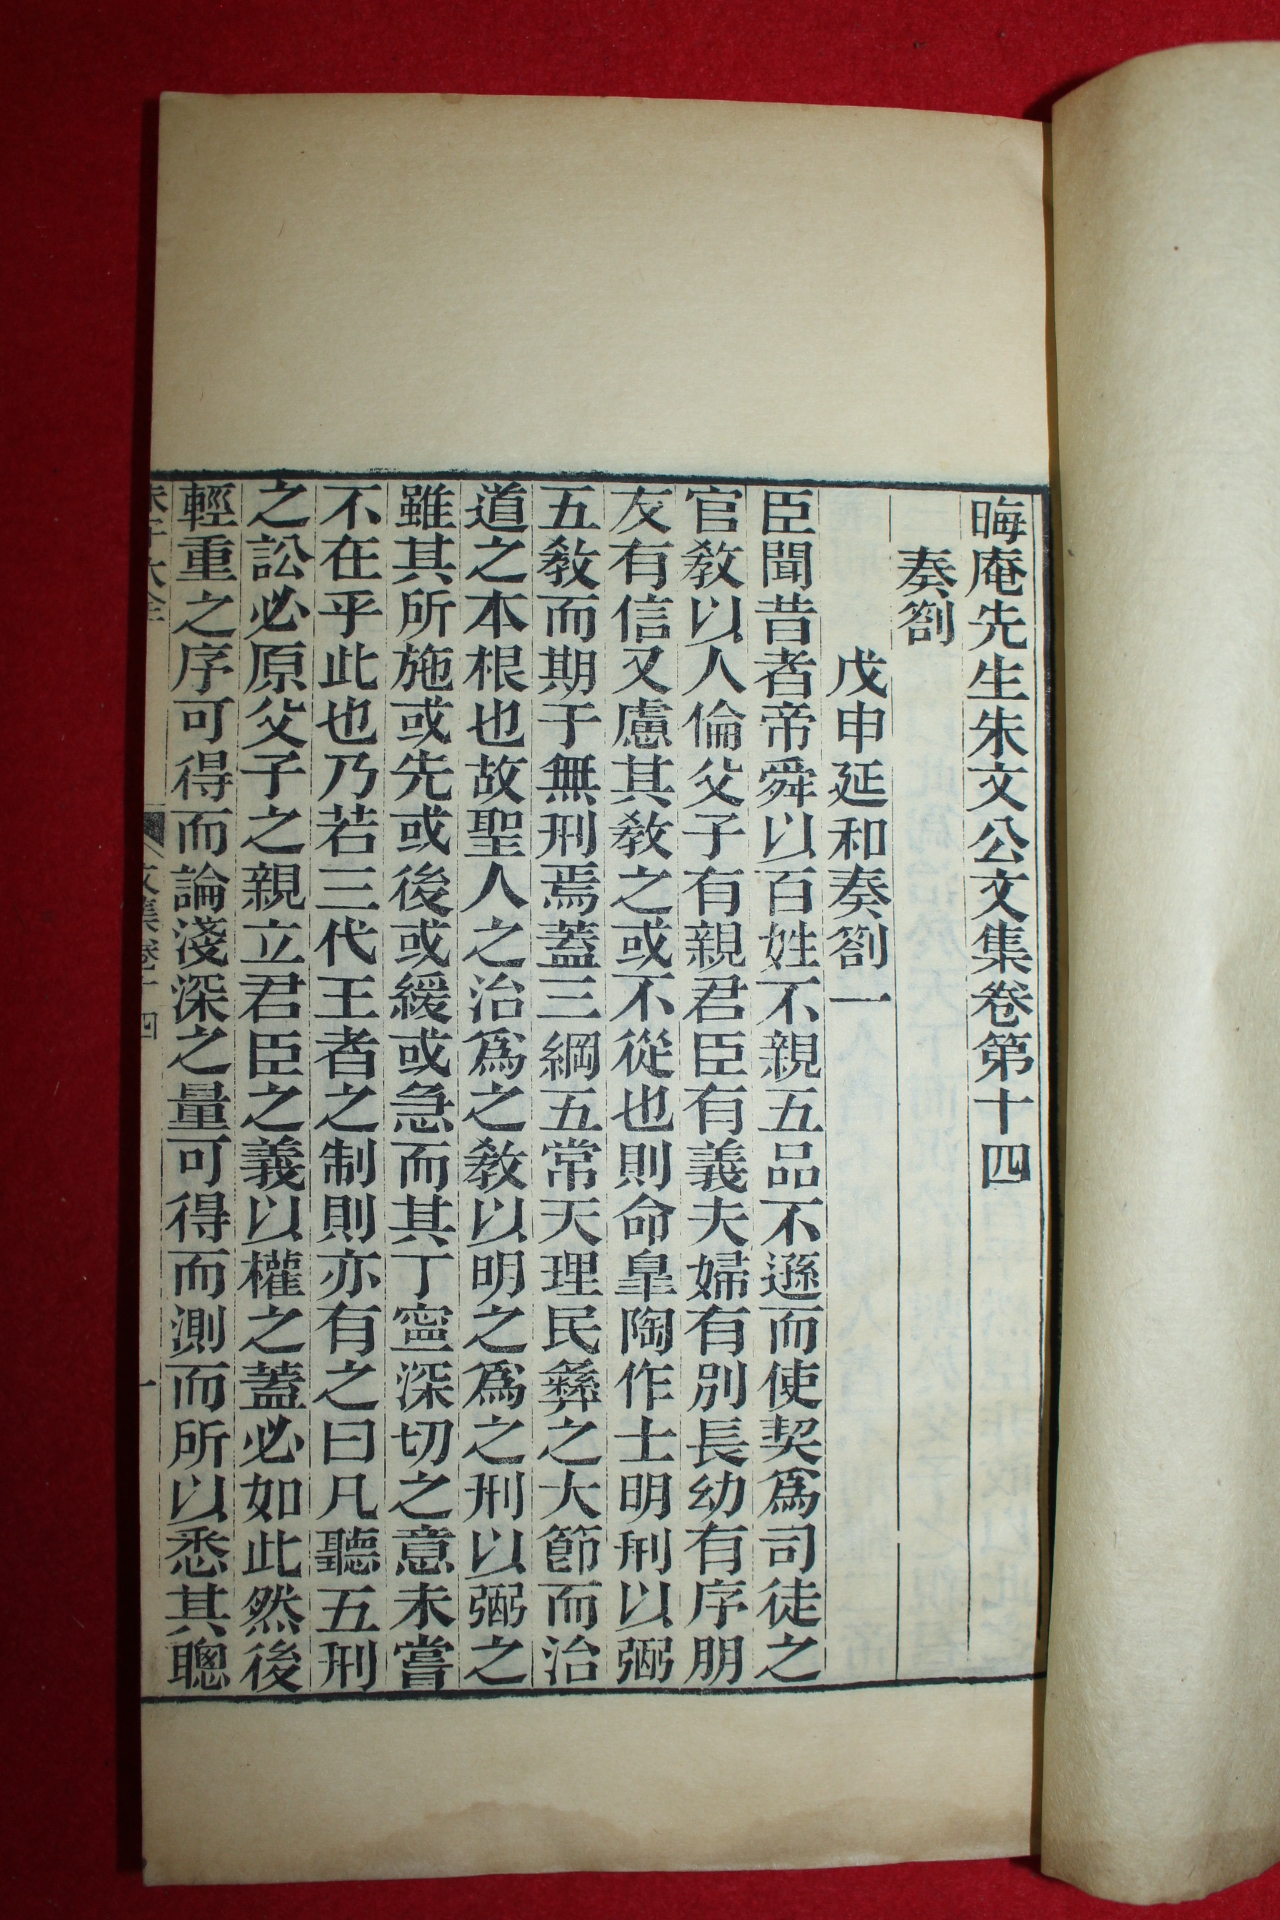 晦庵先生朱文公文集卷第十四
奏劄
戊申延和奏劄一
臣聞昔者帝舜以百姓不親五品不遜而使契爲司徒之
官敎以人倫父子有親君臣有義夫婦有別長幼有序朋
友有信又慮其敎之或不從也則命臯陶作士明刑以弼
五敎而期于無刑焉蓋三綱五常天理民彝之大節而治
道之本根也故聖人之治爲之敎以明之爲之刑以弼之
雖其所施或先或後或緩或急而其丁寧深切之意未嘗
不在乎此也乃若三代王者之制則亦有之曰凡聽五刑
之訟必原父子之親立君臣之義以權之蓋必如此然後
輕重之序可得而論淺深之量可得而測而所以悉其聰
朱子大全 文集卷十四 一